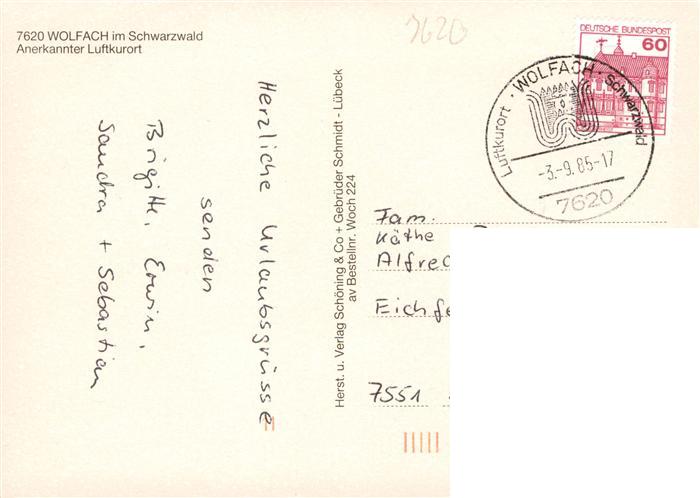 7620 WOLFACH im Schwarzwald
Anerkannter Luftkurort
7620
DEUTSCHE BUNDESPOST
60
Luftkurort · WOLFACH · Schwarzwald
-3.-9.85-17
7620
Herzliche Urlaubsgrüsse
senden
Brigitte, Erwin,
Sandra + Sebastian
Herst. u. Verlag Schöning & Co + Gebrüder Schmidt - Lübeck
av Bestellnr. Woch 224
Fam.
Käthe
Alfred
Eichfe
7551